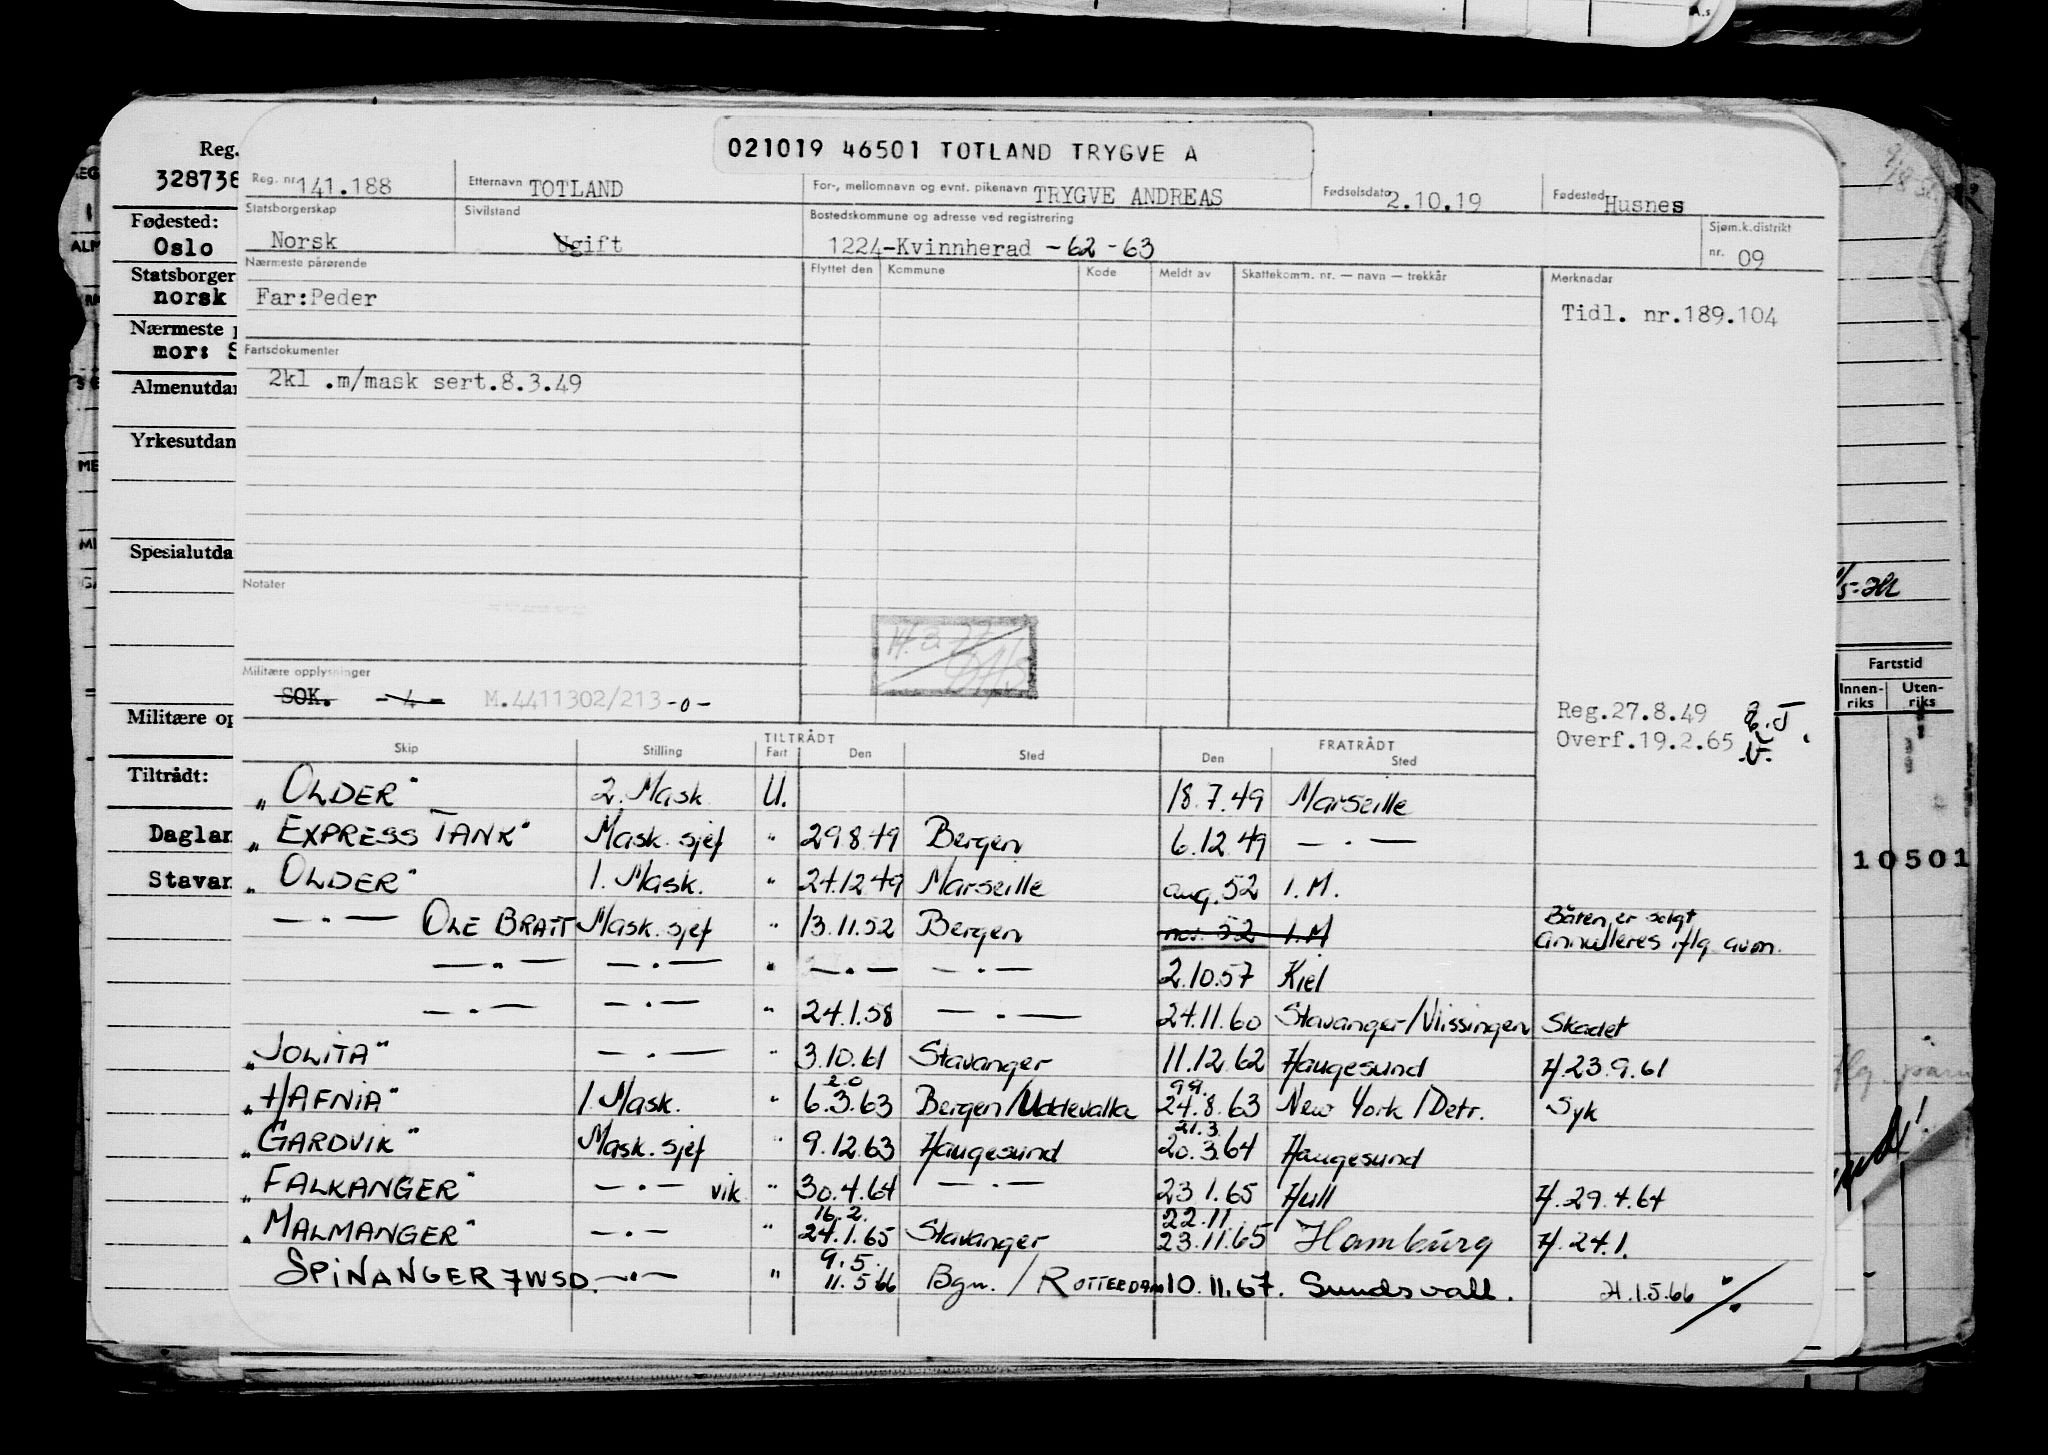 021019 46501 TOTLAND TRYGVE A
Reg. nr. 141.188 Etternavn TOTLAND For-, mellomnavn og evnt. pikenavn TRYGVE ANDREAS Fødselsdato 2.10.19 Fødested Husnes
Statsborgerskap Norsk Sivilstand Ugift Bostedskommune og adresse ved registrering 1224-Kvinnherad -62-63 Sjøm.k.distrikt nr. 09
Nærmeste pårørende Flyttet den Kommune Kode Meldt av Skattekomm. nr. — navn — trekkår Merknadar
Far:Peder Tidl. nr.189.104
Fartsdokumenter
2kl .m/mask sert.8.3.49
Notater
Militære opplysninger
SOK. -4- M.4411302/213-0-
Reg.27.8.49
Overf.19.2.65
TILTRÅDT FRATRÅDT
Skip Stilling Fart Den Sted Den Sted
"OLDER" 2. Mask U. 18.7.49 Marseille
"EXPRESS TANK" Mask. sjef " 29.8.49 Bergen 6.12.49 — · —
"OLDER" 1. Mask. " 24.12.49 Marseille aug. 52 I.M.
— · — OLE BRATT Mask. sjef " 13.11.52 Bergen nov. 52 I.M Båten er solgt annulleres iflg. avm.
— · — — · — " — · — — · — 2.10.57 Kiel
— · — — · — " 24.1.58 — · — 24.11.60 Stavanger/Vlissingen Skadet
"JOLITA" — · — " 3.10.61 Stavanger 11.12.62 Haugesund H.23.9.61
"HAFNIA" 1. Mask. " 20 6.3.63 Bergen/Uddevalla 99. 24.8.63 New York/Detr. Syk
"GARDVIK" Mask. sjef " 9.12.63 Haugesund 21.3 20.3.64 Haugesund
"FALKANGER" — · — vik " 30.4.64 — · — 23.1.65 Hull H.29.4.64
"MALMANGER" — · — " 16.2. 24.1.65 Stavanger 22.11. 23.11.65 Hamburg H.24.1.
SPINANGER 7WSD. — · — " 9.5. 11.5.66 Bgn./ROTTERDAM 10.11.67. Sundsvall. H.1.5.66
Reg.
328738
Fødested:
Oslo
Statsborger
norsk
Nærmeste
mor: S
Almenutdan
Yrkesutdan
Spesialutda
Militære op
Tiltrådt:
Daglan
Stavan
Fartstid
Innen-riks Uten-riks
10501